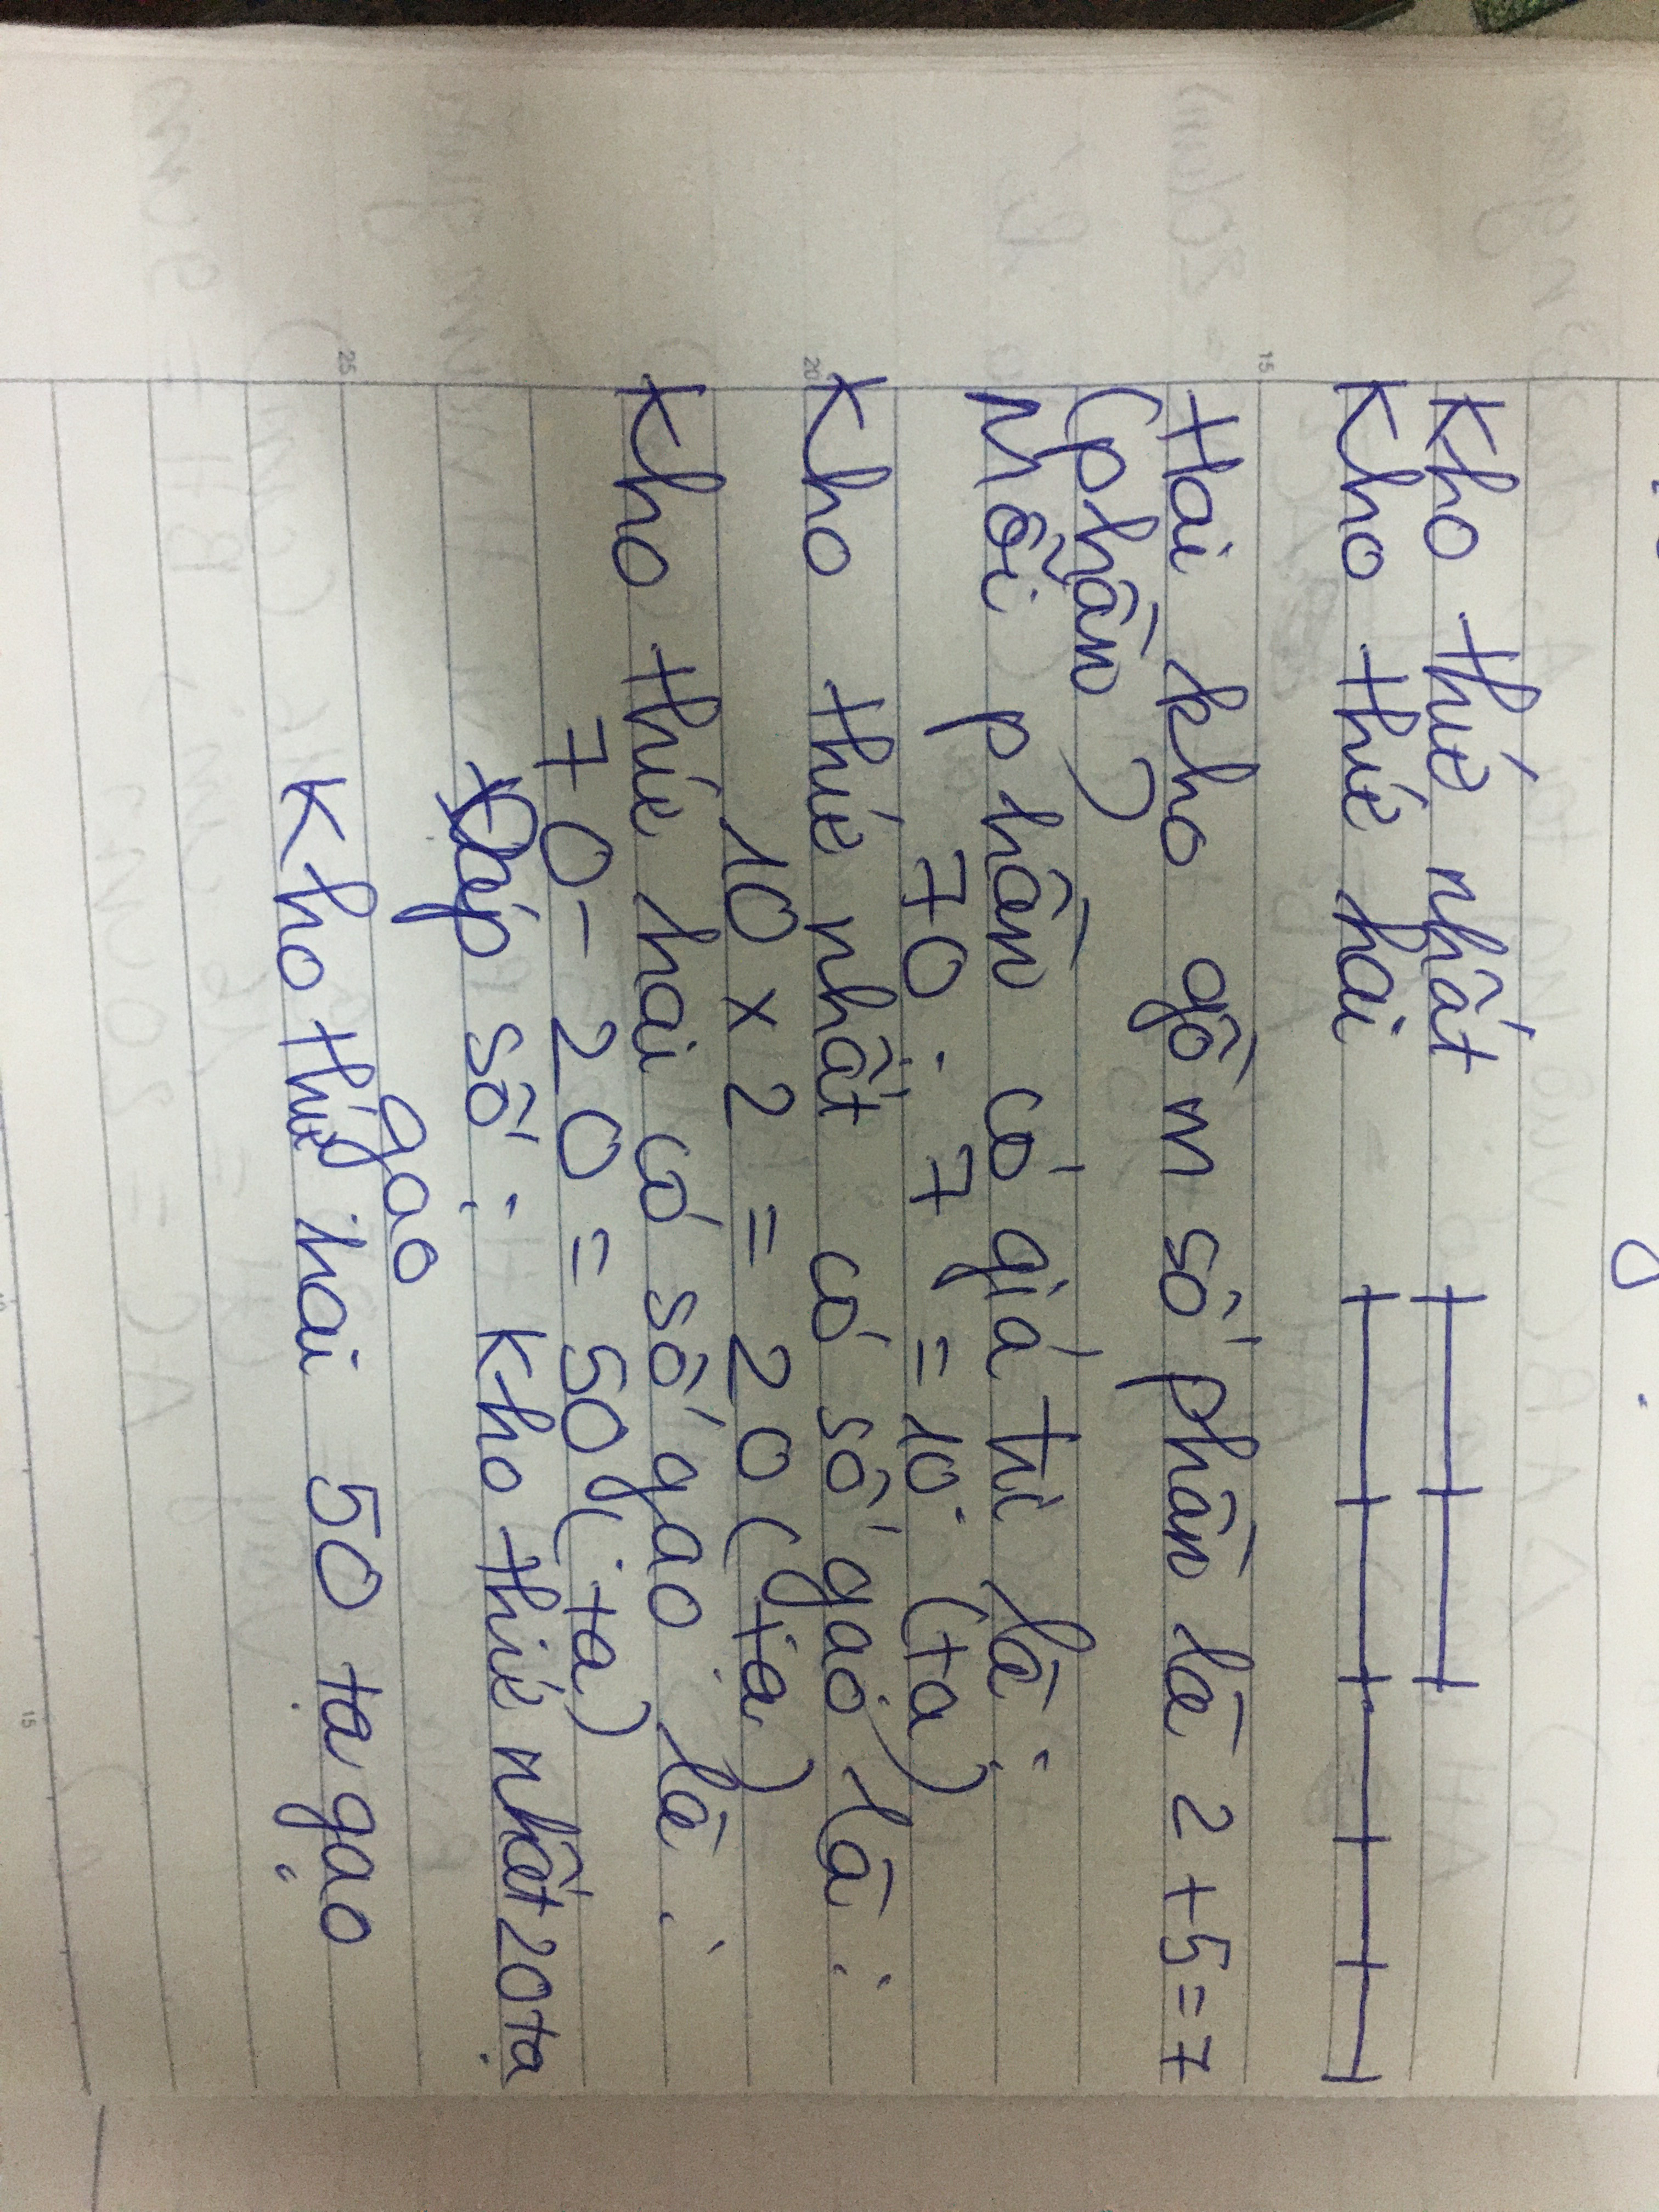 Kho thứ nhất
Kho thứ hai
Hai kho gồm số phần là 2 + 5 = 7
(phần)
Mỗi phần có giá trị là :
70 : 7 = 10 (tạ)
Kho thứ nhất có số gạo là :
10 x 2 = 20 (tạ)
Kho thứ hai có số gạo là :
70 - 20 = 50 (tạ)
Đáp số : Kho thứ nhất 20 tạ
gạo
Kho thứ hai 50 tạ gạo
15
20
25
15